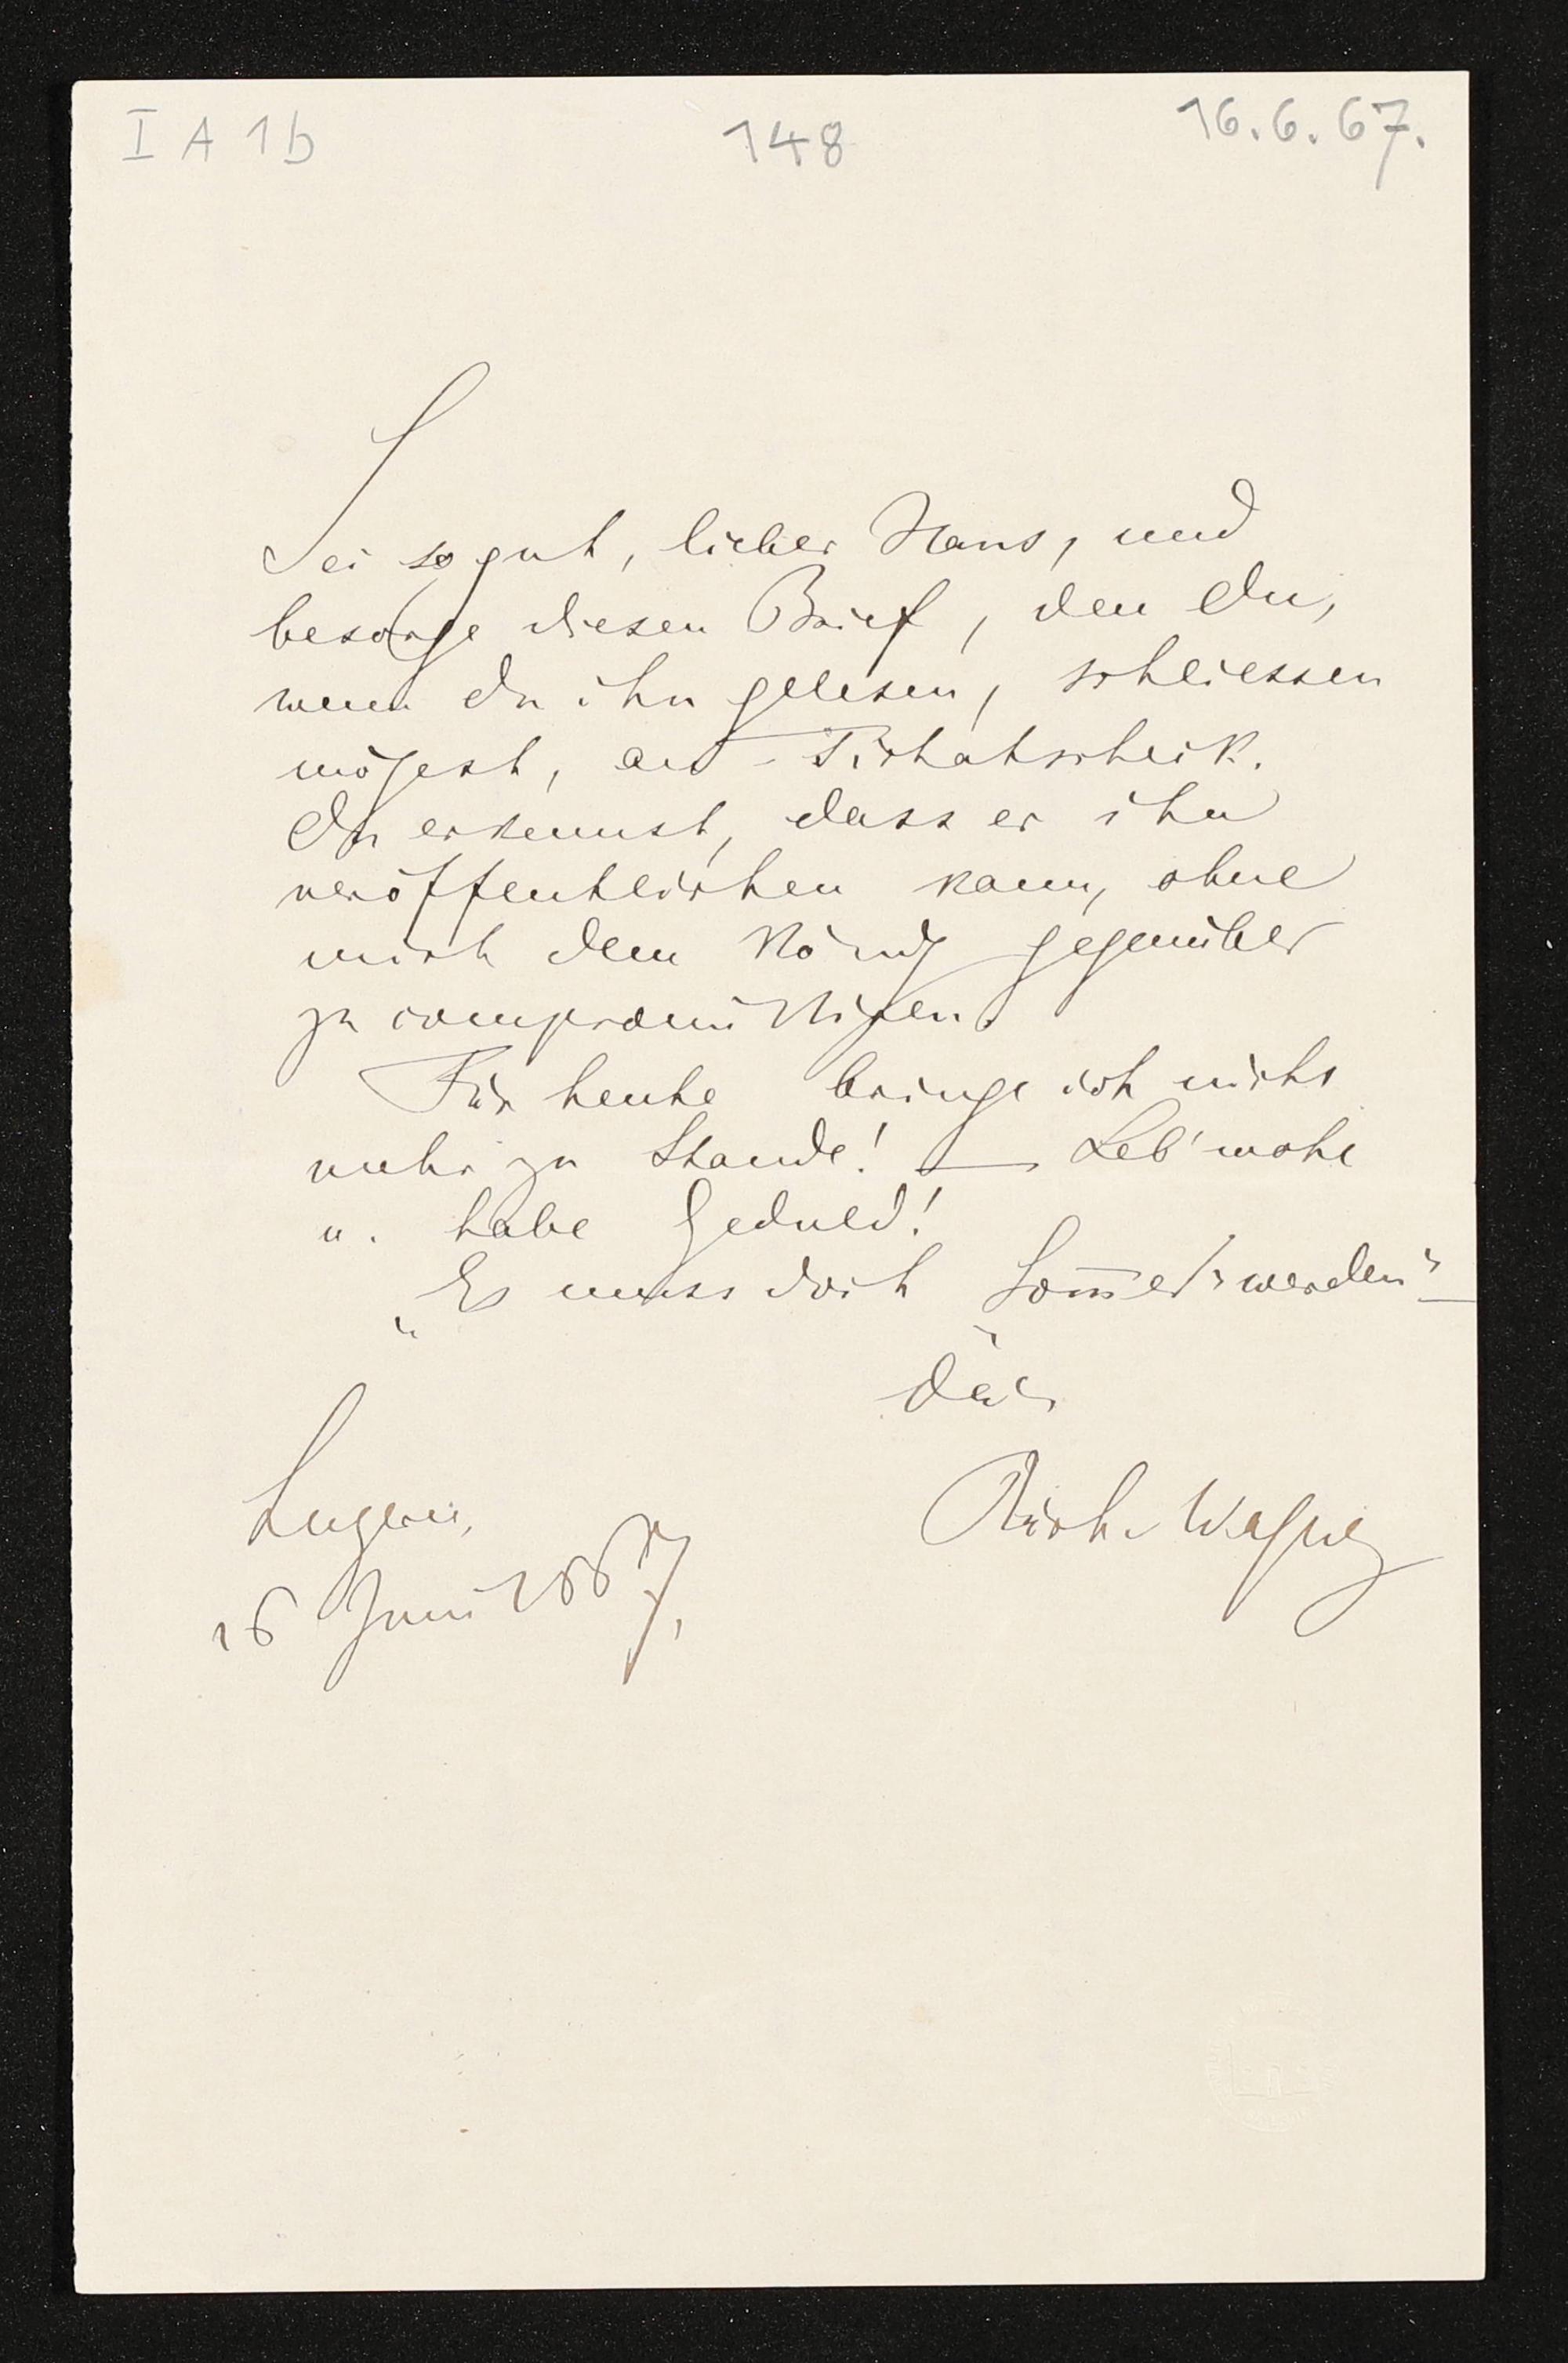 I A 1b 148 16.6.67.
Sei so gut, lieber Hans, und
besorge diesen Brief, den Du,
wenn Du ihn gelesen, schliessen
mögest, an Tichatscheck.
Du erkennst, dass er ihn
veröffentlichen kann, ohne
mich dem König gegenüber
zu compromittiren.
Für heute bringe ich nichts
mehr zu Stande! — Leb' wohl
u. habe Geduld!
„Es muss doch Som̅er werden"—
Dein
Luzern, Rich. Wagner
16 Juni 1867.